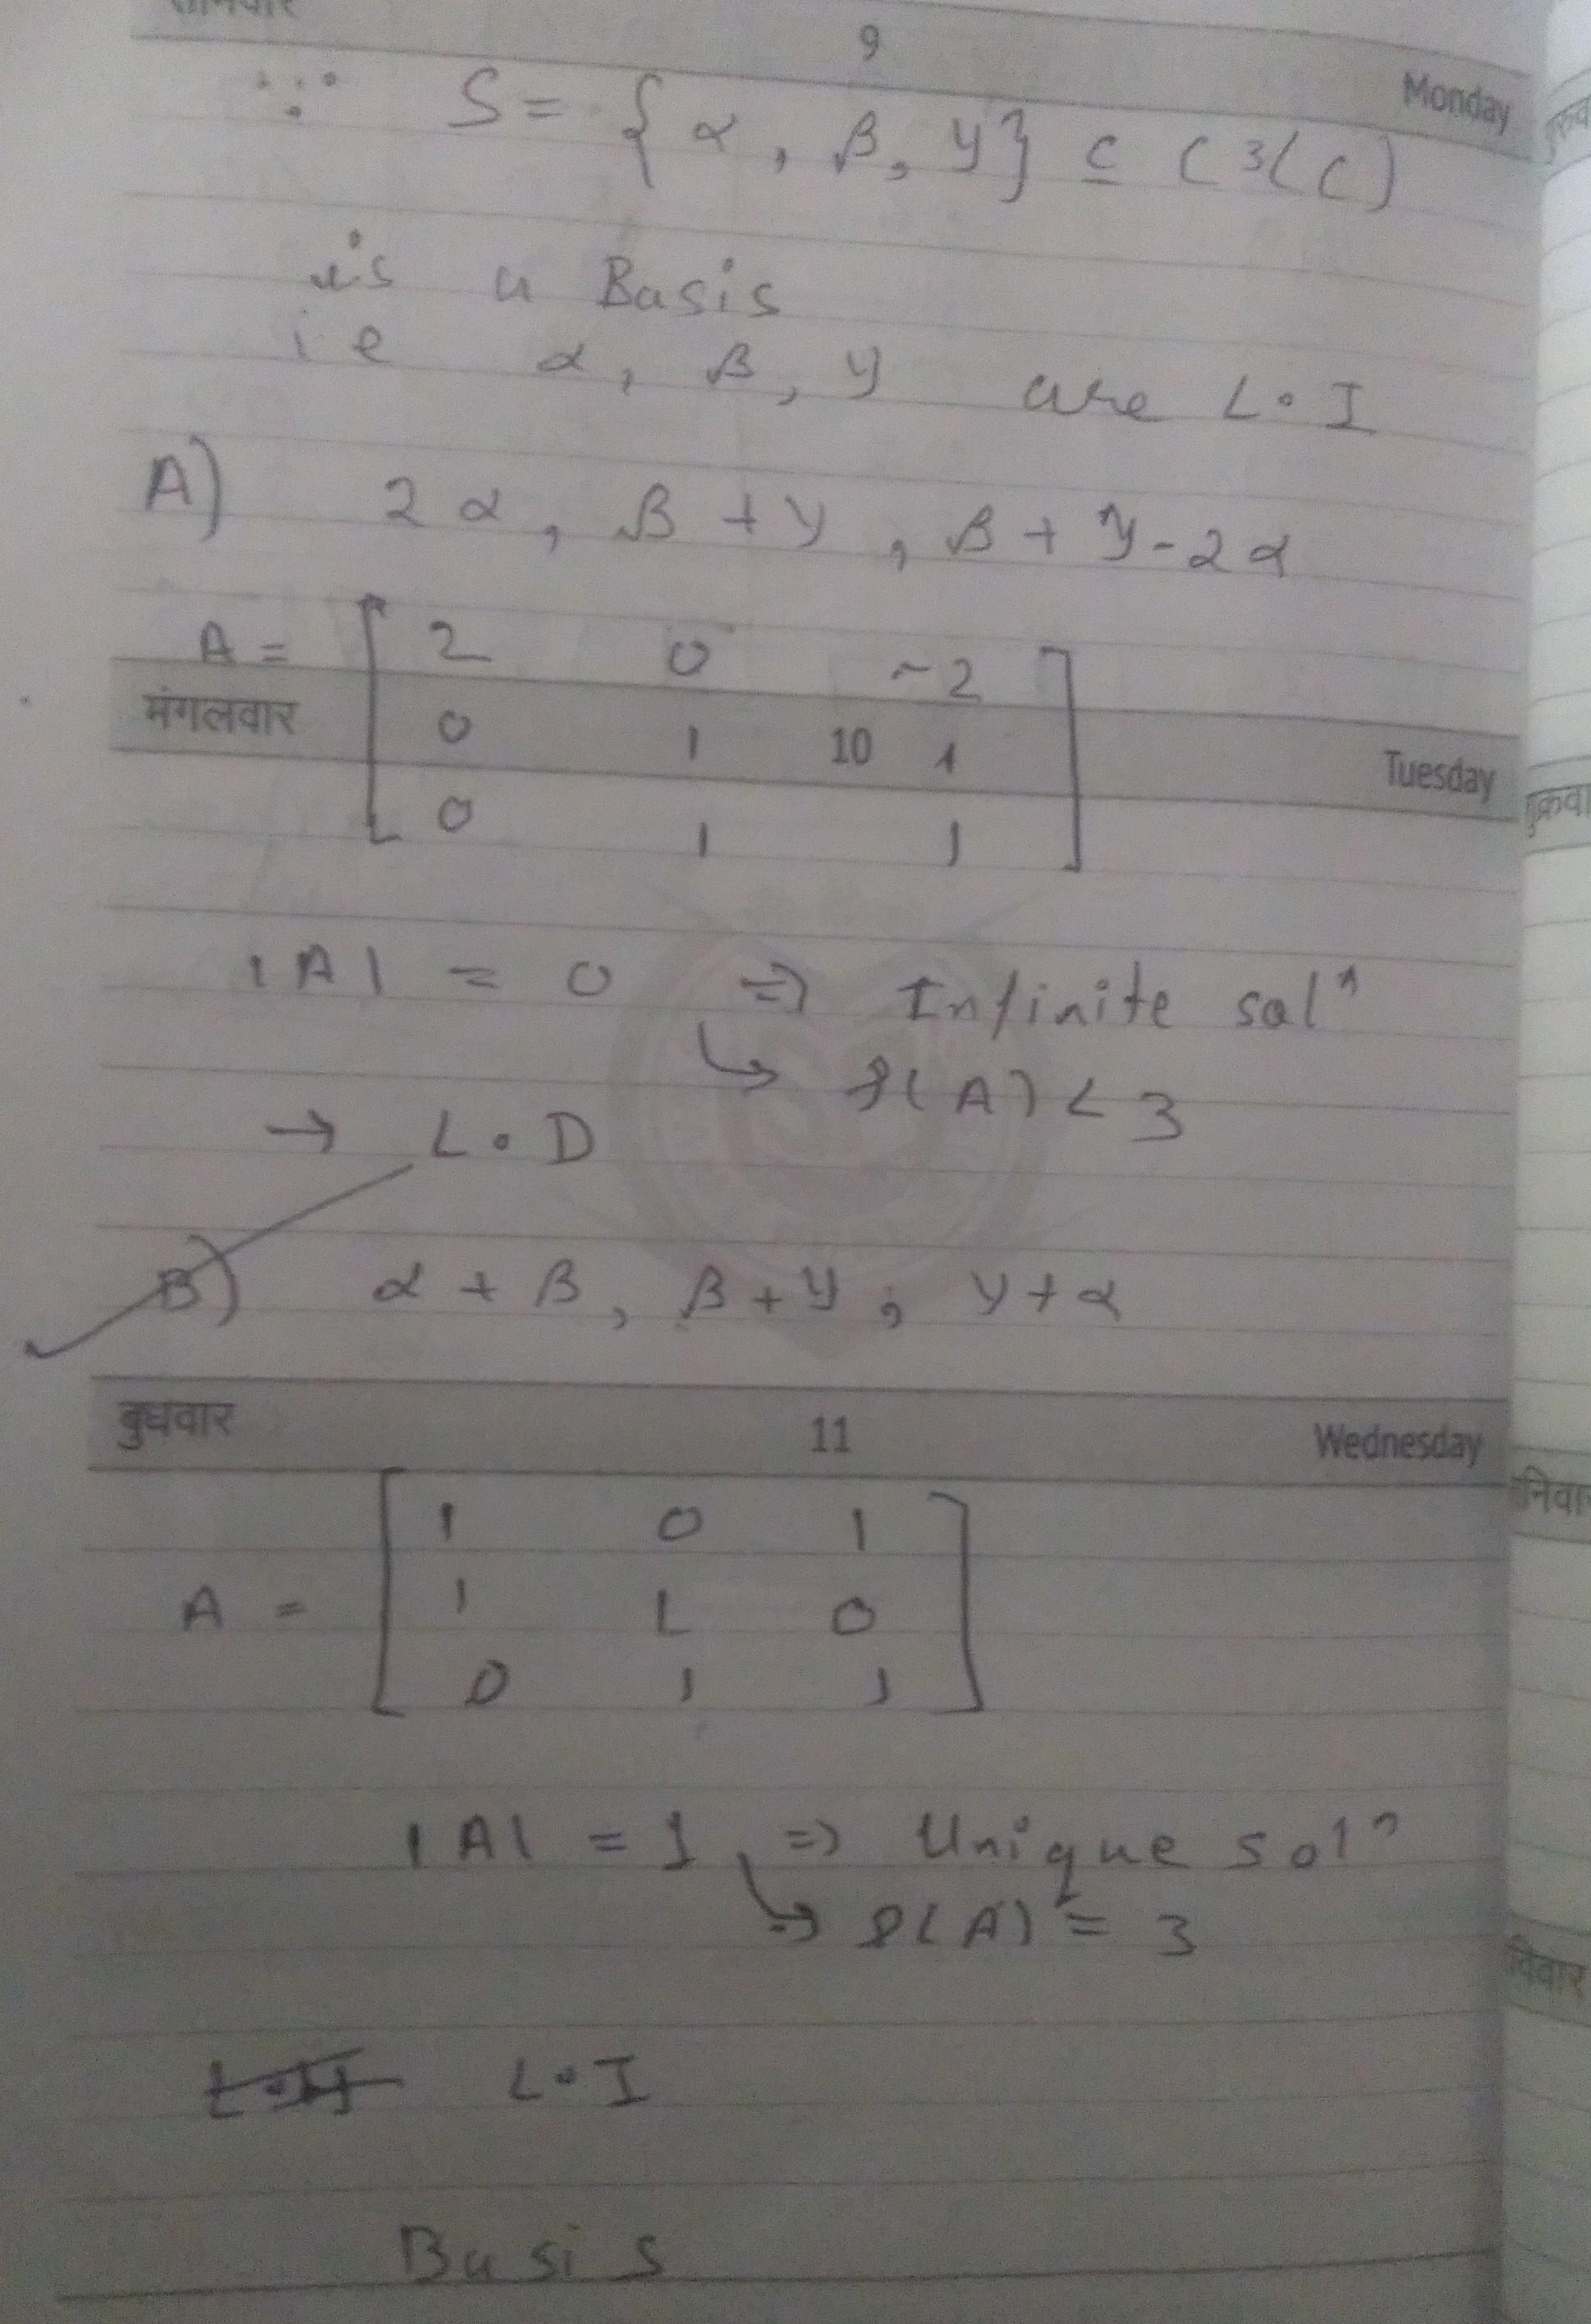 9
Monday
∵ S = { α , β, y} ⊆ C 3( C )
is a Basis
i e α , β , y are L.I
A) 2 α , β + y , β + y - 2 α
A = [ 2 0 -2
मंगलवार 0 1 10 1 Tuesday
0 1 1 ]
|A| = 0 ⇒ Infinite solⁿ
↳ ρ(A) < 3
→ L.D
B) α + β , β + y , y + α
बुधवार 11 Wednesday
[ 1 0 1
A = 1 1 0
0 1 1 ]
|A| = 1 ⇒ Unique solⁿ
↳ ρ(A) = 3
L.I
Basis